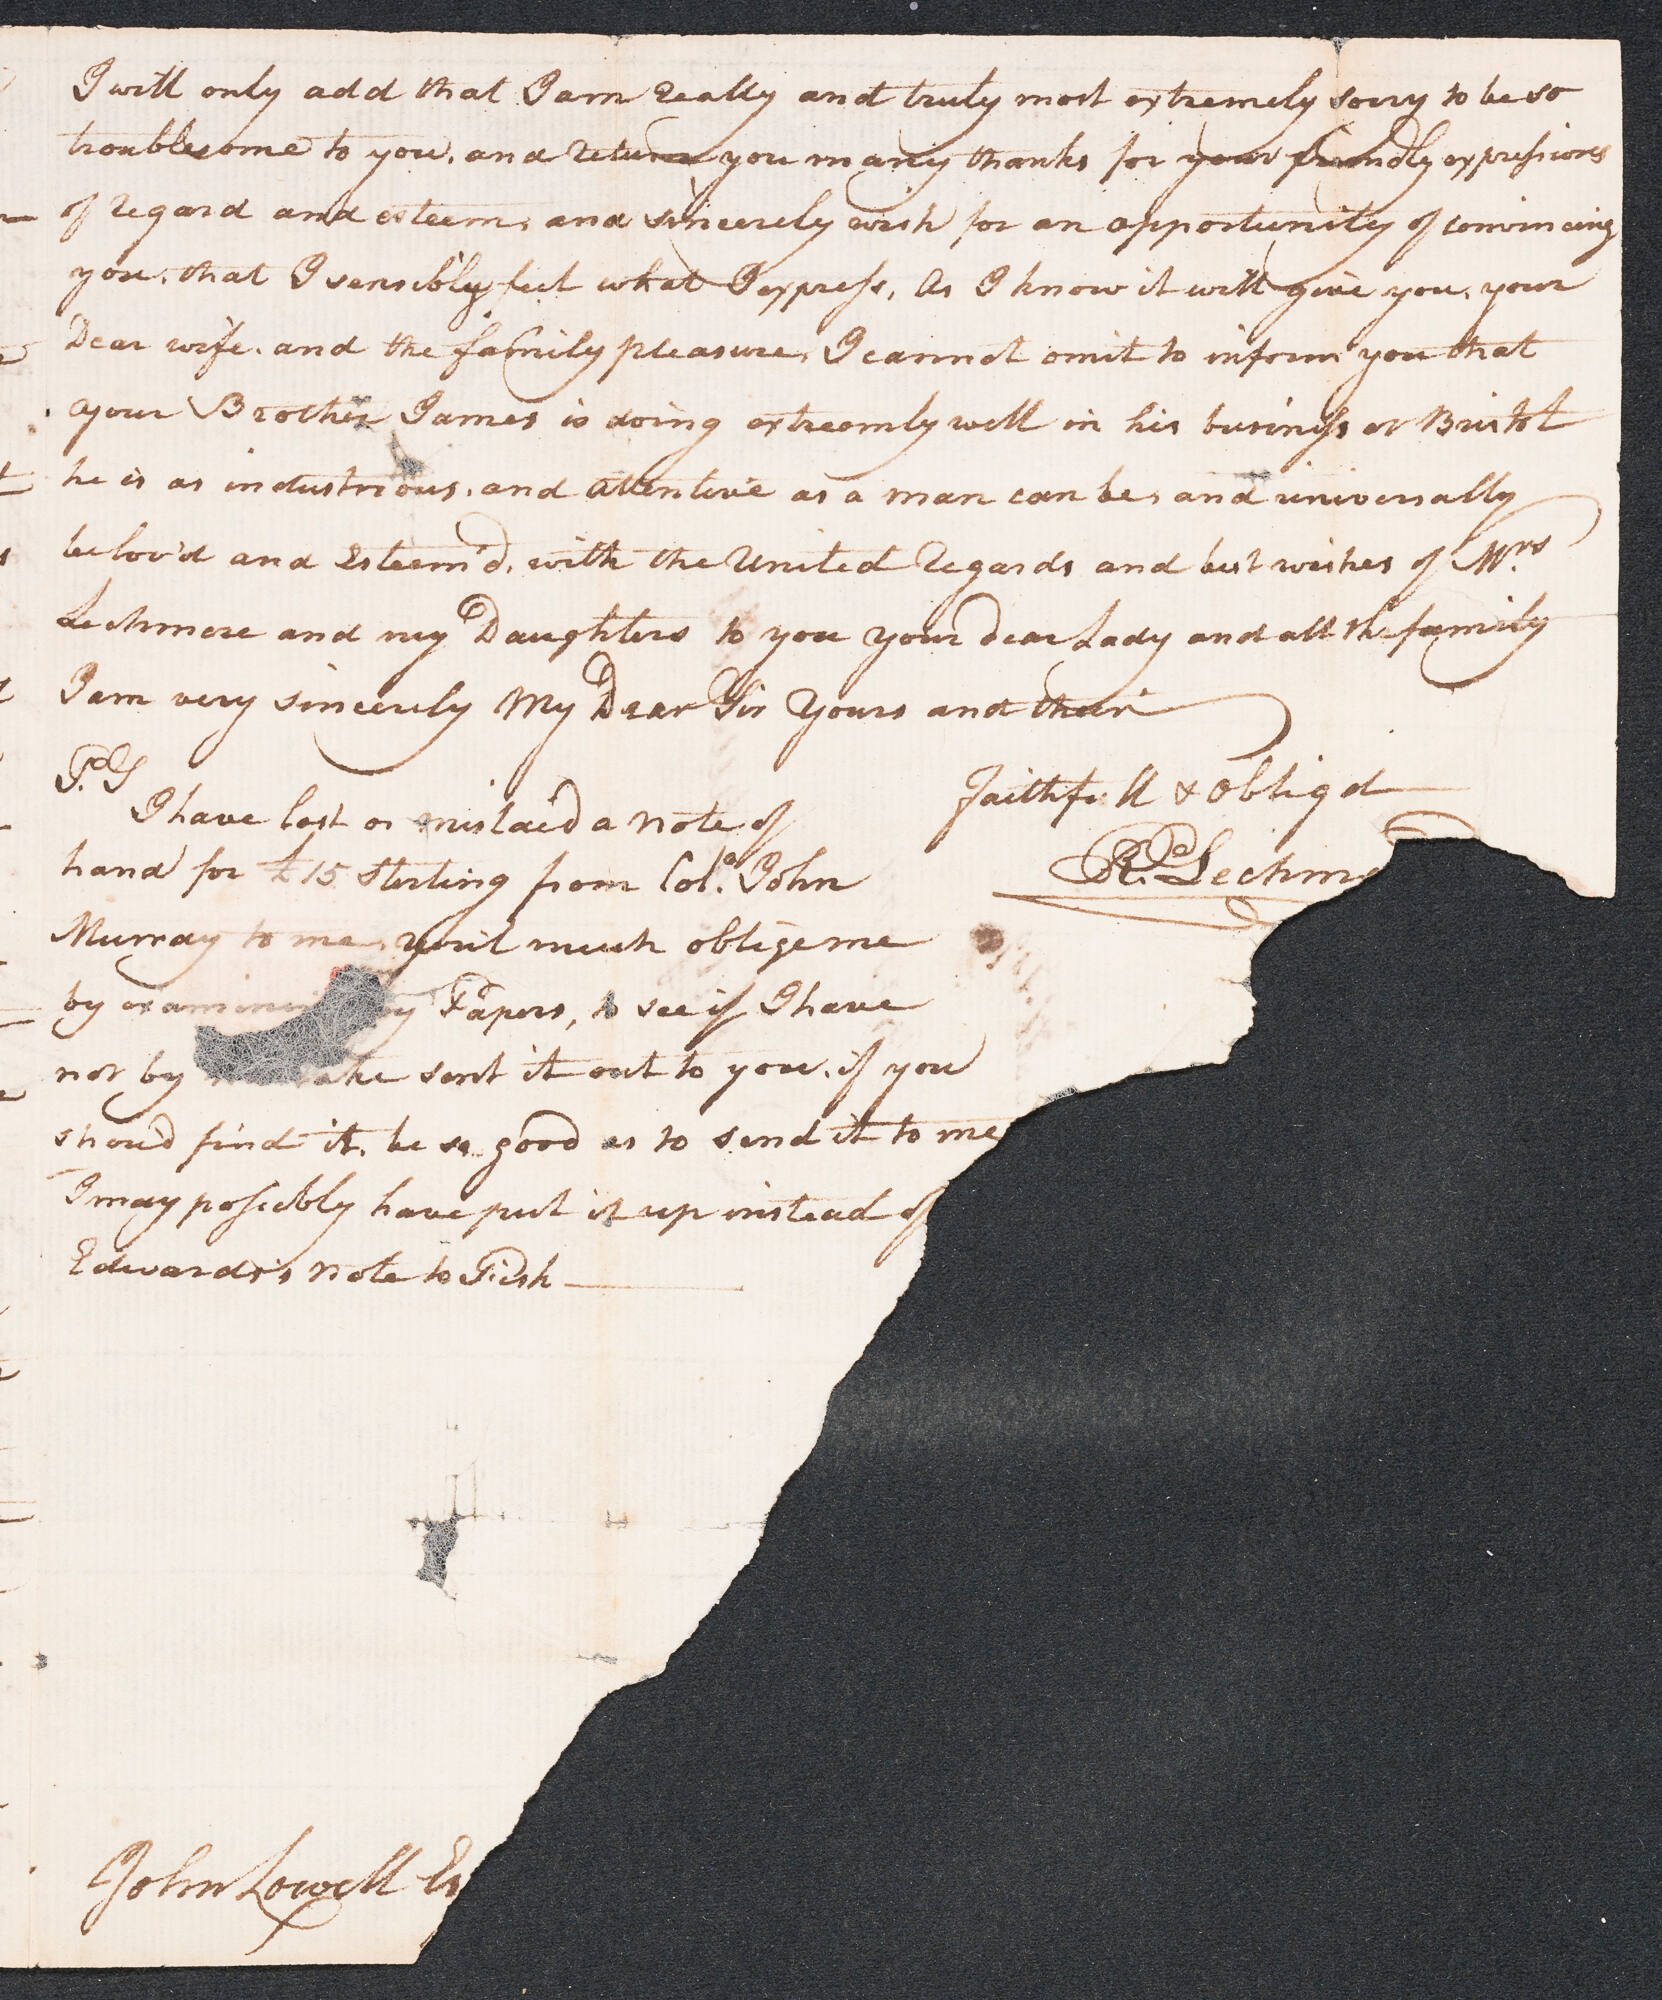 I will only add that I am really and truly most extremely sorry to be so
troublesome to you, and return you many thanks for your friendly expressions
of regard and esteem, and sincerely wish for an opportunity of convincing
you, that I sensibly feel what I express, As I know it will give you, your
Dear wife, and the family pleasure, I cannot omit to inform you that
your Brother James is doing extreemly well in his business at Bristol
he is as industrious, and attentive as a man can be, and universally
belov'd and Esteem'd, with the United Regards and best wishes of Mrs
Lechmere and my Daughters to you your dear Lady and all the family
I am very sincerely My Dear Sir Yours and their
Faithfull & Obligd
Rd. Lechm
P.S
I have lost or mislaid a note of
hand for £15 Sterling from Colo. John
Murray to me, will much oblige me
by examini my Papers, to see if I have
not by take sent it out to you, if you
shou'd find it, be so good as to send it to me
I may possibly have put it up instead of
Edwards's note to Fish
John Lowell Es